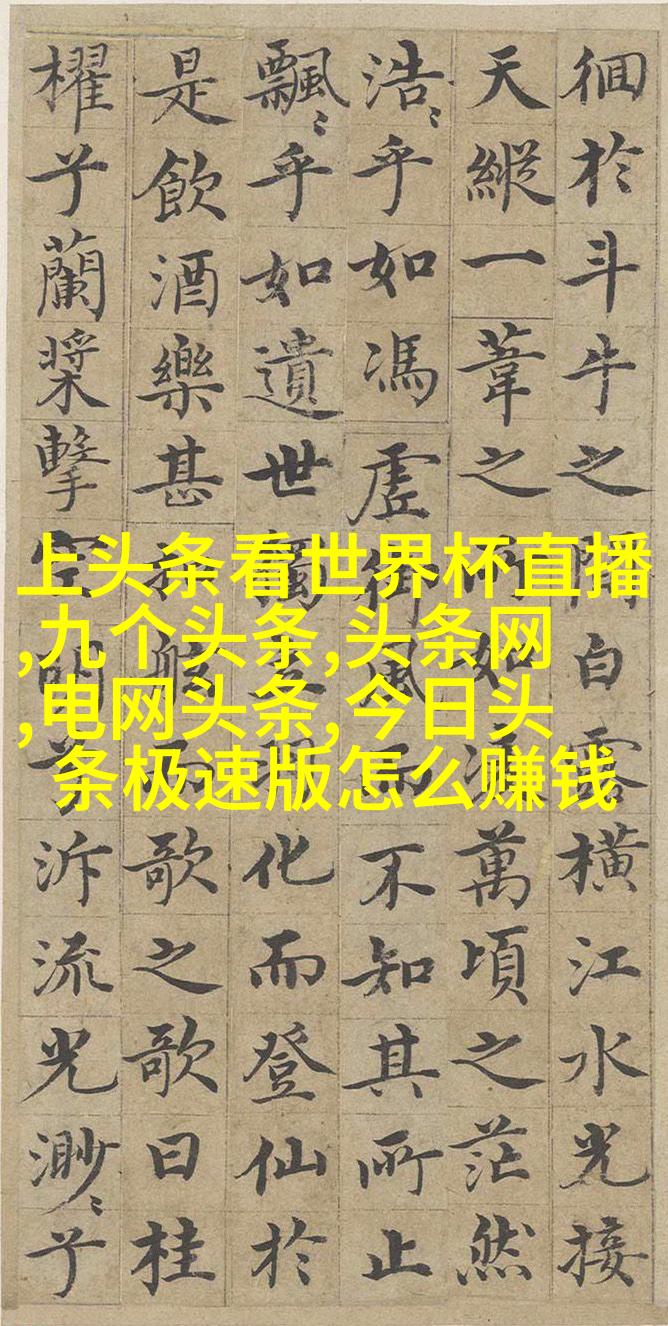 徊於斗牛之間白露橫江水光接
天縱一葦之所如凌萬頃之茫然
浩〻乎如馮虛御風而不知其所止
飄〻乎如遺世獨立羽化而登仙於
是飲酒樂甚扣舷而歌之歌曰桂
櫂兮蘭槳擊空明兮泝流光渺〻兮
上头条看世界杯直播
,九个头条,头条网
,电网头条,今日头
条极速版怎么赚钱